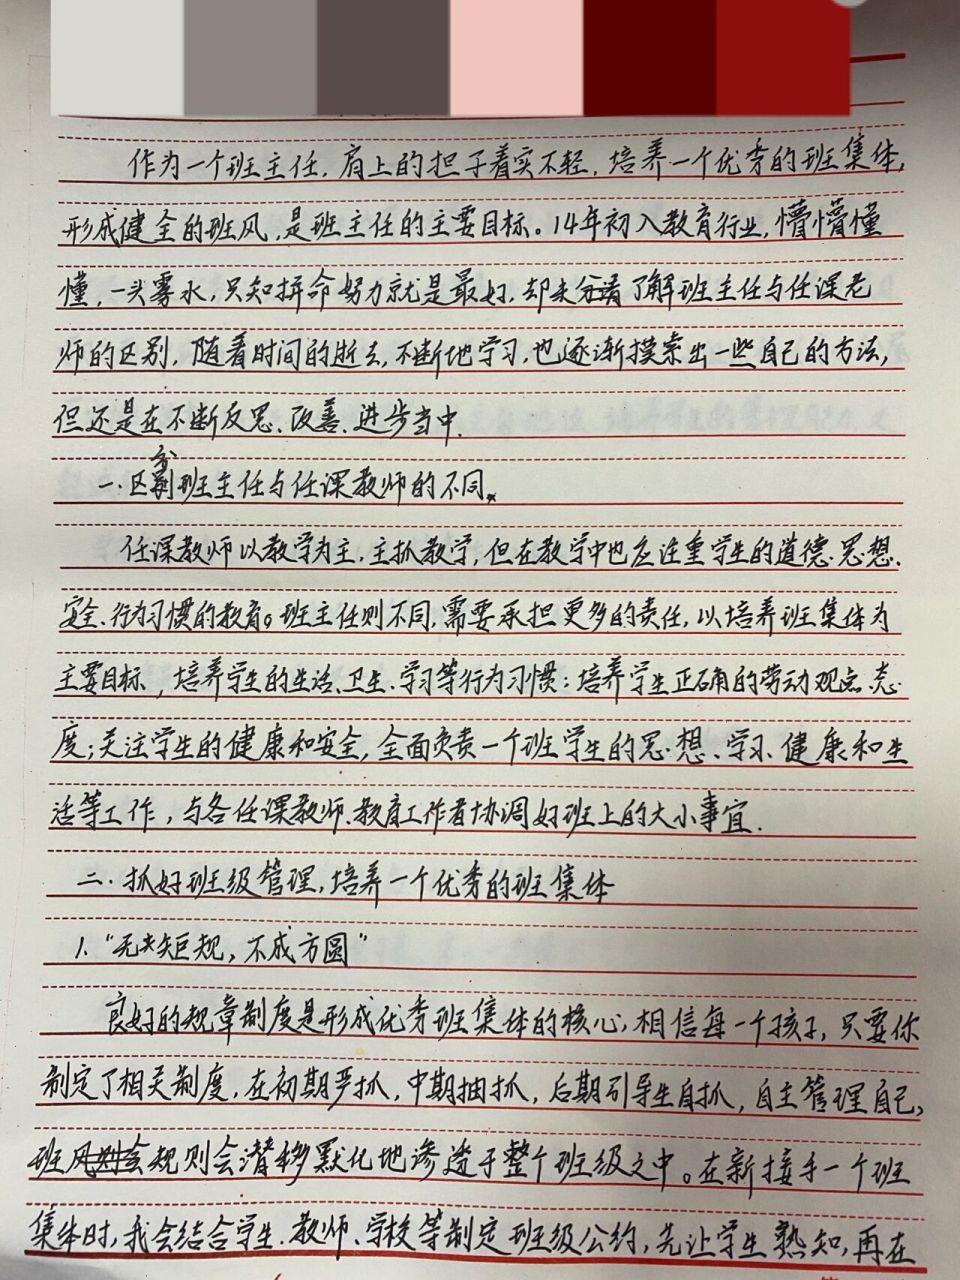 作为一个班主任，肩上的担子着实不轻，培养一个优秀的班集体，
形成健全的班风，是班主任的主要目标。14年初入教育行业，懵懵懂
懂，一头雾水，只知拼命努力就是最好，却未分清了解班主任与任课老
师的区别，随着时间的逝去，不断地学习，也逐渐摸索出一些自己的方法，
但还是在不断反思、改善、进步当中.
一、区分班主任与任课教师的不同。
任课教师以教学为主，主抓教学，但在教学中也应注重学生的道德、思想、
安全、行为习惯的教育。班主任则不同，需要承担更多的责任，以培养班集体为
主要目标，培养学生的生活、卫生、学习等行为习惯；培养学生正确的劳动观点、态
度；关注学生的健康和安全，全面负责一个班学生的思想、学习、健康和生
活等工作，与各任课教师、教育工作者协调好班上的大小事宜.
二、抓好班级管理，培养一个优秀的班集体
1.“无矩规，不成方圆”
良好的规章制度是形成优秀班集体的核心，相信每一个孩子，只要你
制定了相关制度，在初期严抓，中期抽抓，后期引导生自抓，自主管理自己，
班规则会潜移默化地渗透于整个班级之中。在新接手一个班
集体时，我会结合学生、教师、学校等制定班级公约，先让学生熟知，再在